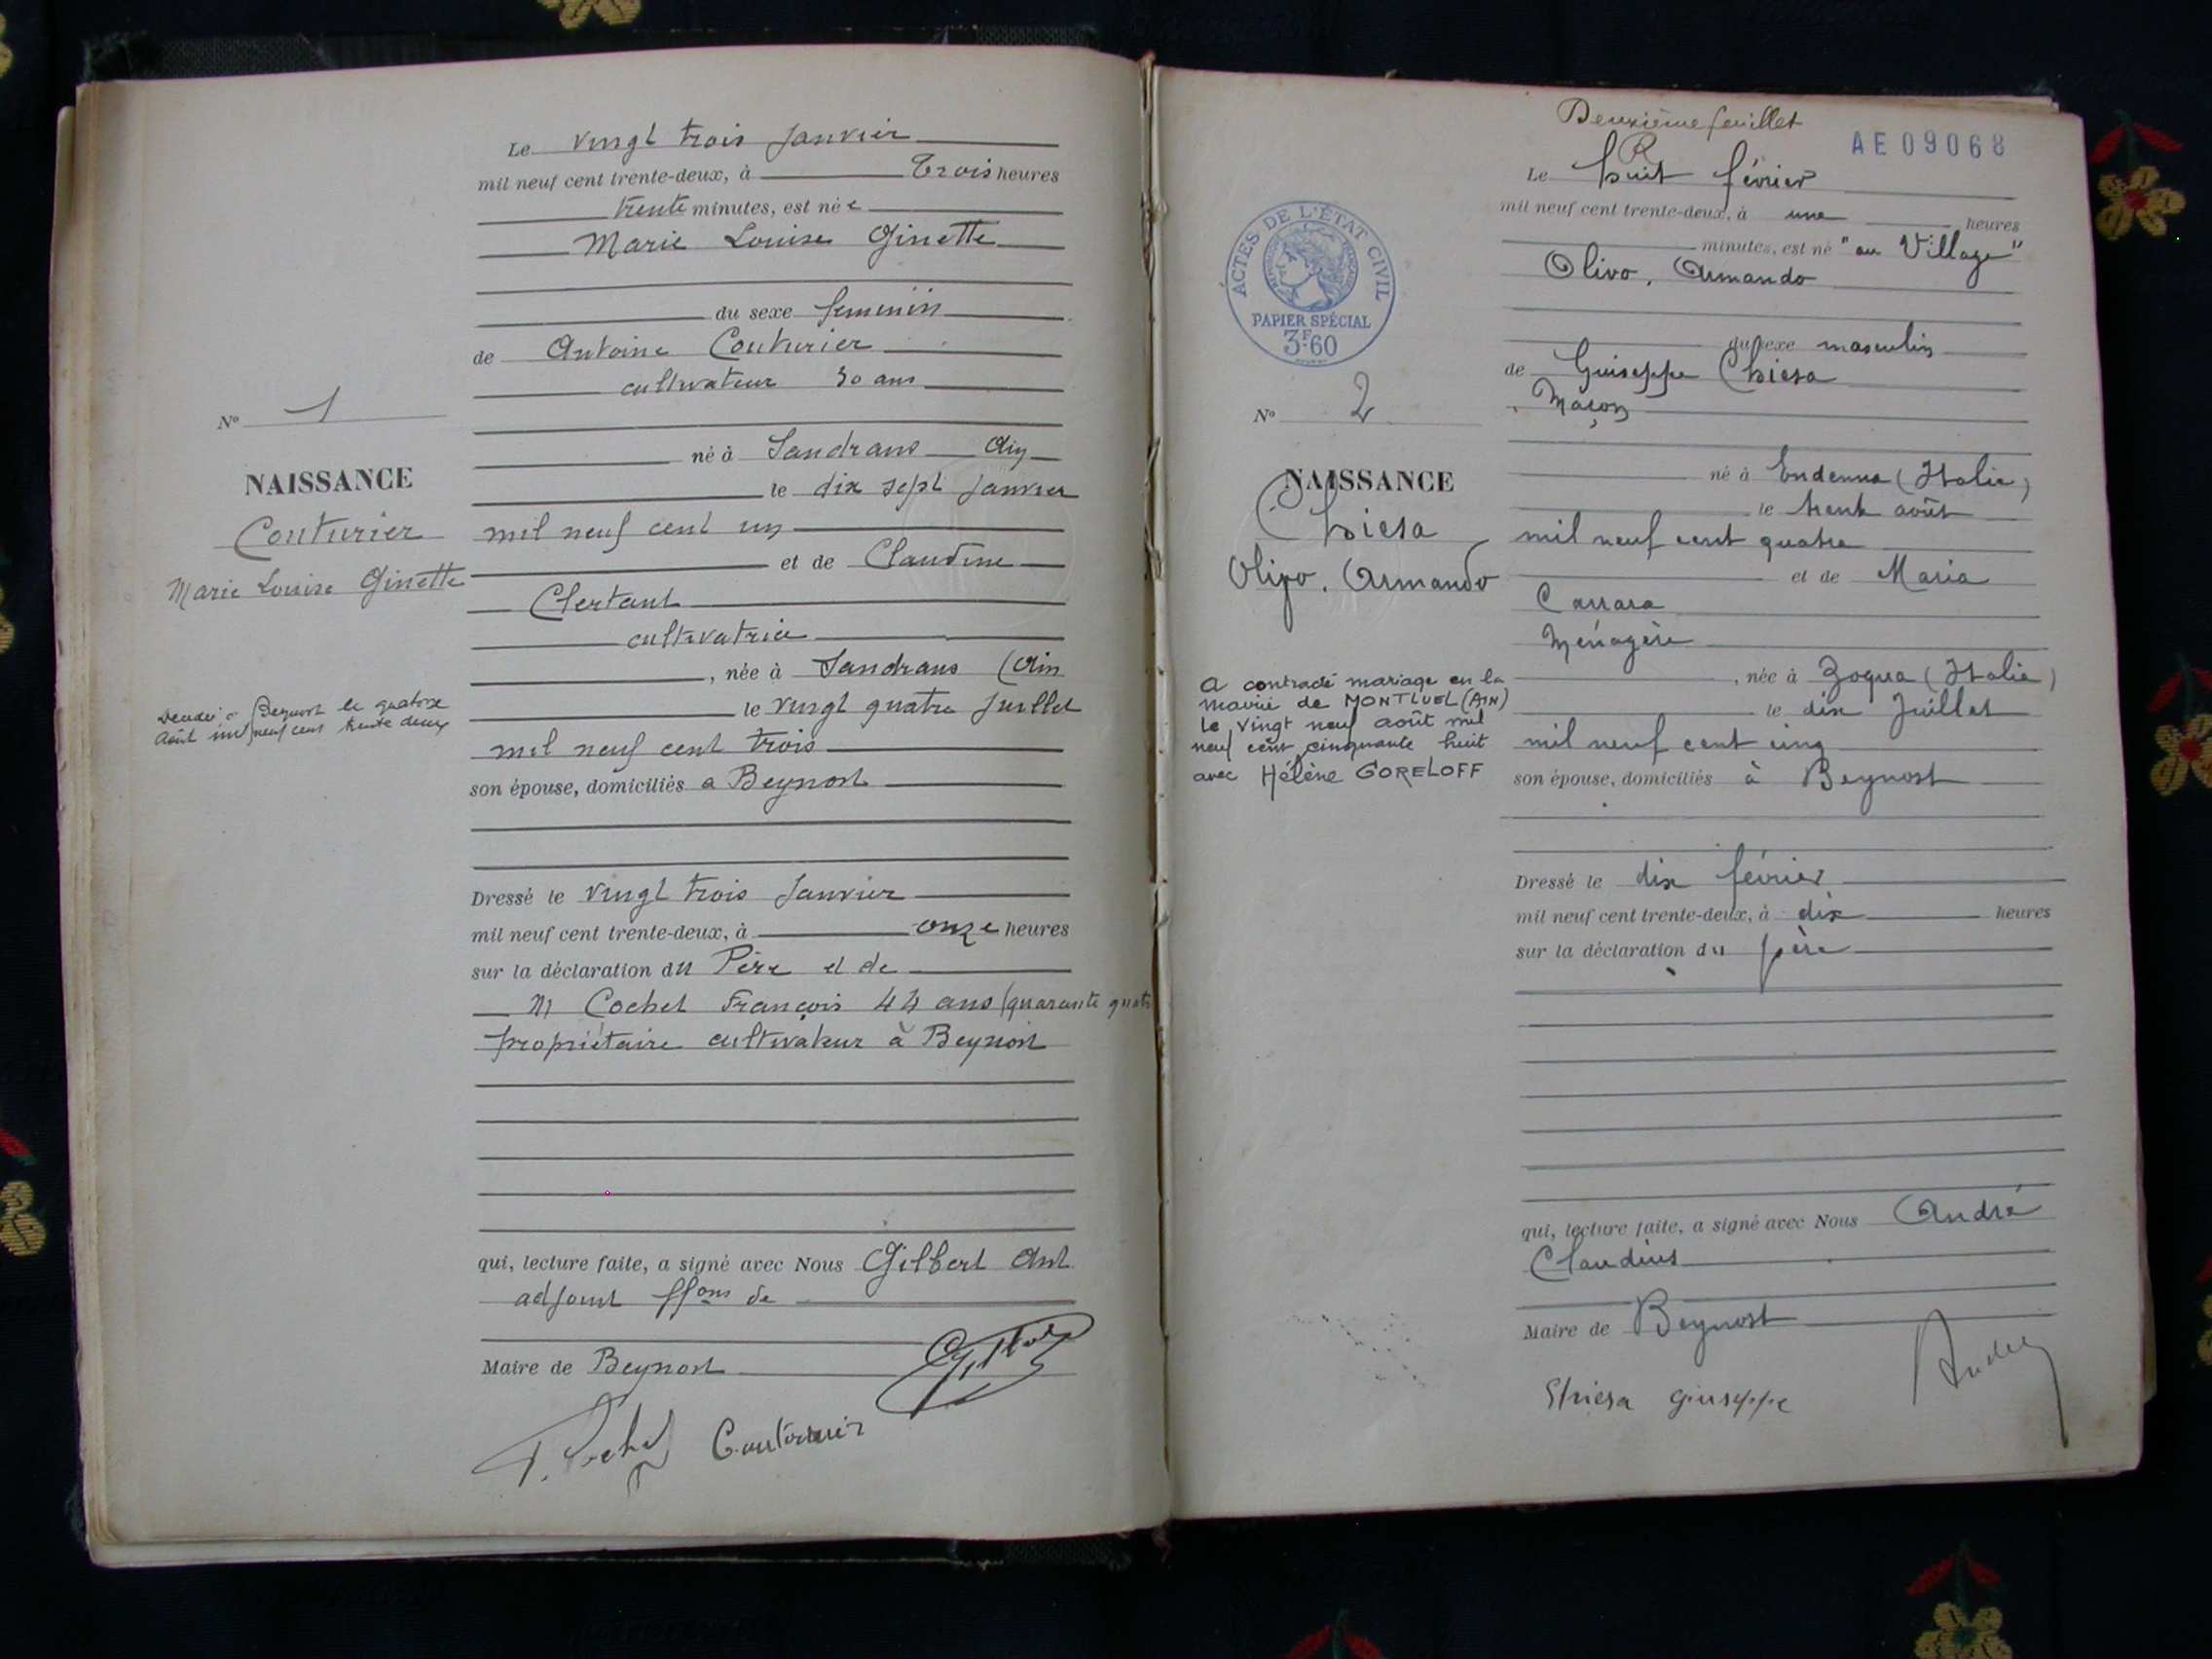 Le vingt trois Janvier
mil neuf cent trente-deux, à Trois heures
trente minutes, est née
Marie Louise Ginette
du sexe feminin
de Antoine Couturier
cultivateur 30 ans
né à Sandrans Ain
le dix sept Janvier
mil neuf cent un
et de Claudine
Clertant
cultivatrice
, née à Sandrans (Ain
le vingt quatre Juillet
mil neuf cent trois
son épouse, domiciliés a Beynost
Dressé le vingt trois Janvier
mil neuf cent trente-deux, à onze heures
sur la déclaration du Père et de
M Cochet François 44 ans (quarante quatre
propriétaire cultivateur à Beynost
qui, lecture faite, a signé avec Nous Gilbert Ant
adjoint ffons de
Maire de Beynost
Couturier
No 1
NAISSANCE
Couturier
Marie Louise Ginette
à Beynost le quatorze
Août mil neuf cent trente deux
Deuxième feuillet
AE 09068
Le huit février
mil neuf cent trente-deux, à une heures
minutes, est né "au Village"
Olivo, Armando
du sexe masculin
de Guiseppe Chiesa
Maçon
né à Endenna (Italie)
le trente août
mil neuf cent quatre
et de Maria
Carrara
Ménagère
, née à Zogna (Italie)
le dix Juillet
mil neuf cent cinq
son épouse, domiciliés à Beynost
Dressé le dix février
mil neuf cent trente-deux, à dix heures
sur la déclaration du père
qui, lecture faite, a signé avec Nous André
Claudius
Maire de Beynost
Chiesa Giuseppe
ACTES DE L'ÉTAT CIVIL
RÉPUBLIQUE FRANÇAISE
PAPIER SPÉCIAL
3F60
No 2
NAISSANCE
Chiesa
Olivo. Armando
A contracté mariage en la
mairie de MONTLUEL (AIN)
le vingt neuf août mil
neuf cent cinquante huit
avec Hélène GORELOFF